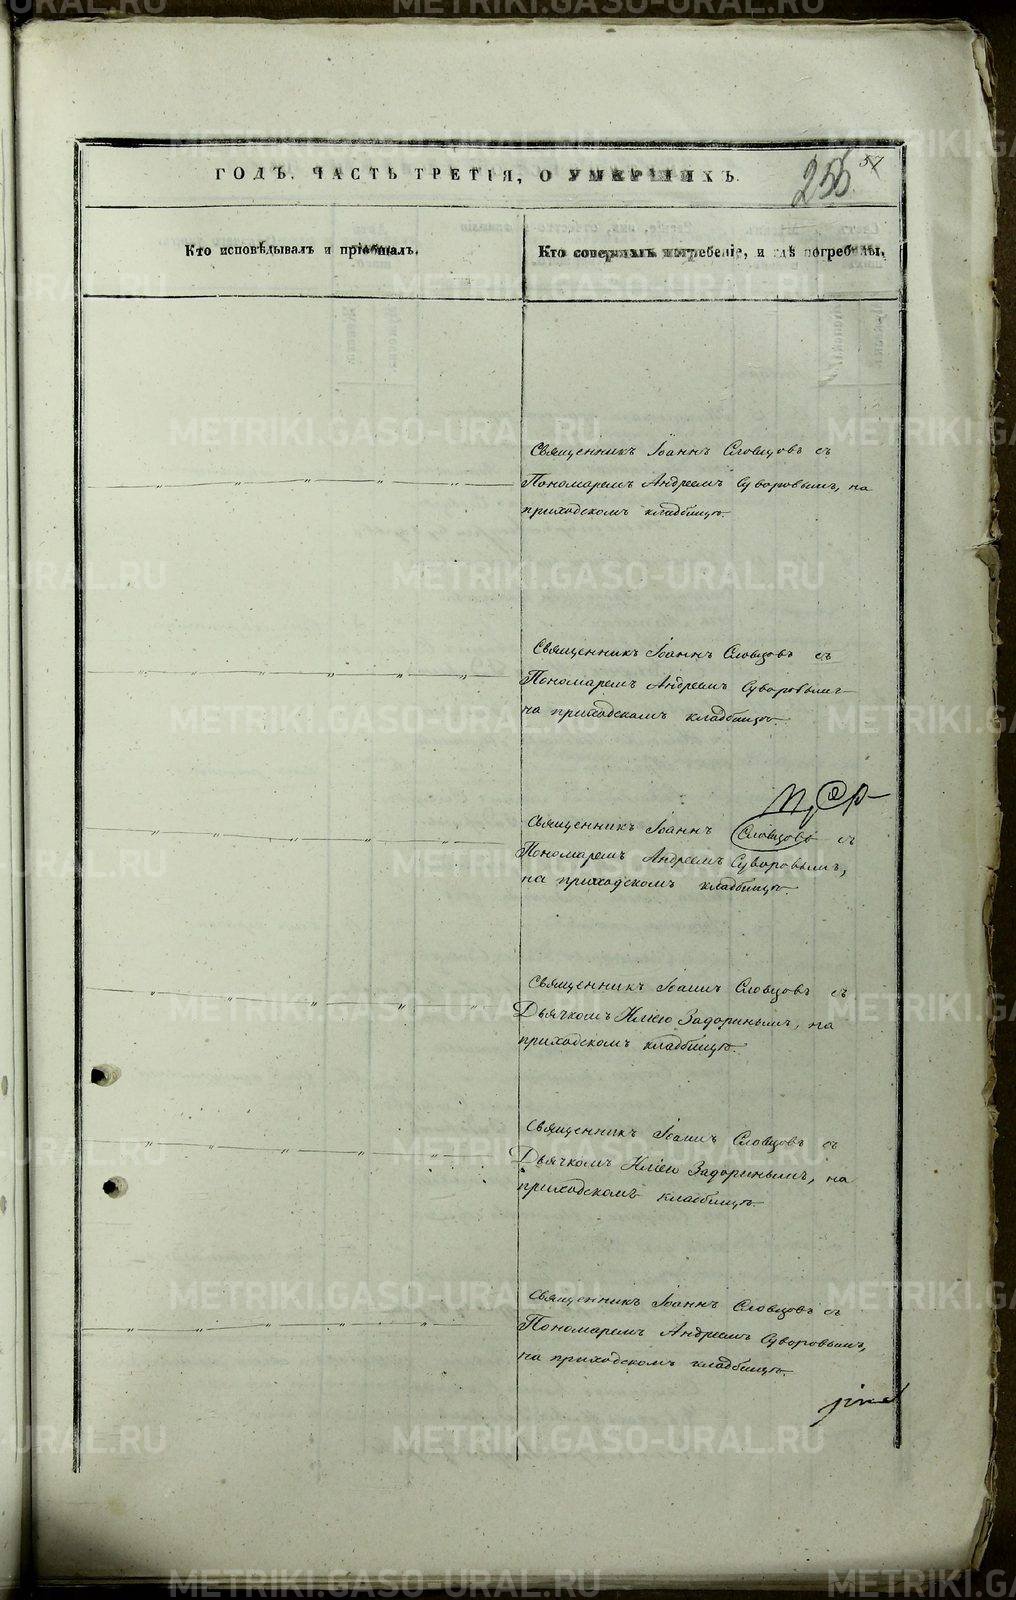 ГОДЪ. ЧАСТЬ ТРЕТІЯ, О УМЕРШИХЪ.
255 51
Кто исповѣдывалъ и пріобщалъ.
Кто совершалъ погребеніе, и гдѣ погребены.
Священникъ Іоаннъ Словцовъ съ
Пономаремъ Андреемъ Суворовымъ, на
приходскомъ кладбищѣ.
Священникъ Іоаннъ Словцовъ съ
Пономаремъ Андреемъ Суворовымъ
на приходскомъ кладбищѣ.
Священникъ Іоаннъ Словцовъ съ
Пономаремъ Андреемъ Суворовымъ,
на приходскомъ кладбищѣ.
Священникъ Іоаннъ Словцовъ съ
Дьячкомъ Иліею Задоринымъ, на
приходскомъ кладбищѣ.
Священникъ Іоаннъ Словцовъ съ
Дьячкомъ Иліею Задоринымъ, на
приходскомъ кладбищѣ.
Священникъ Іоаннъ Словцовъ съ
Пономаремъ Андреемъ Суворовымъ,
на приходскомъ кладбищѣ.
METRIKI.GASO-URAL.RU